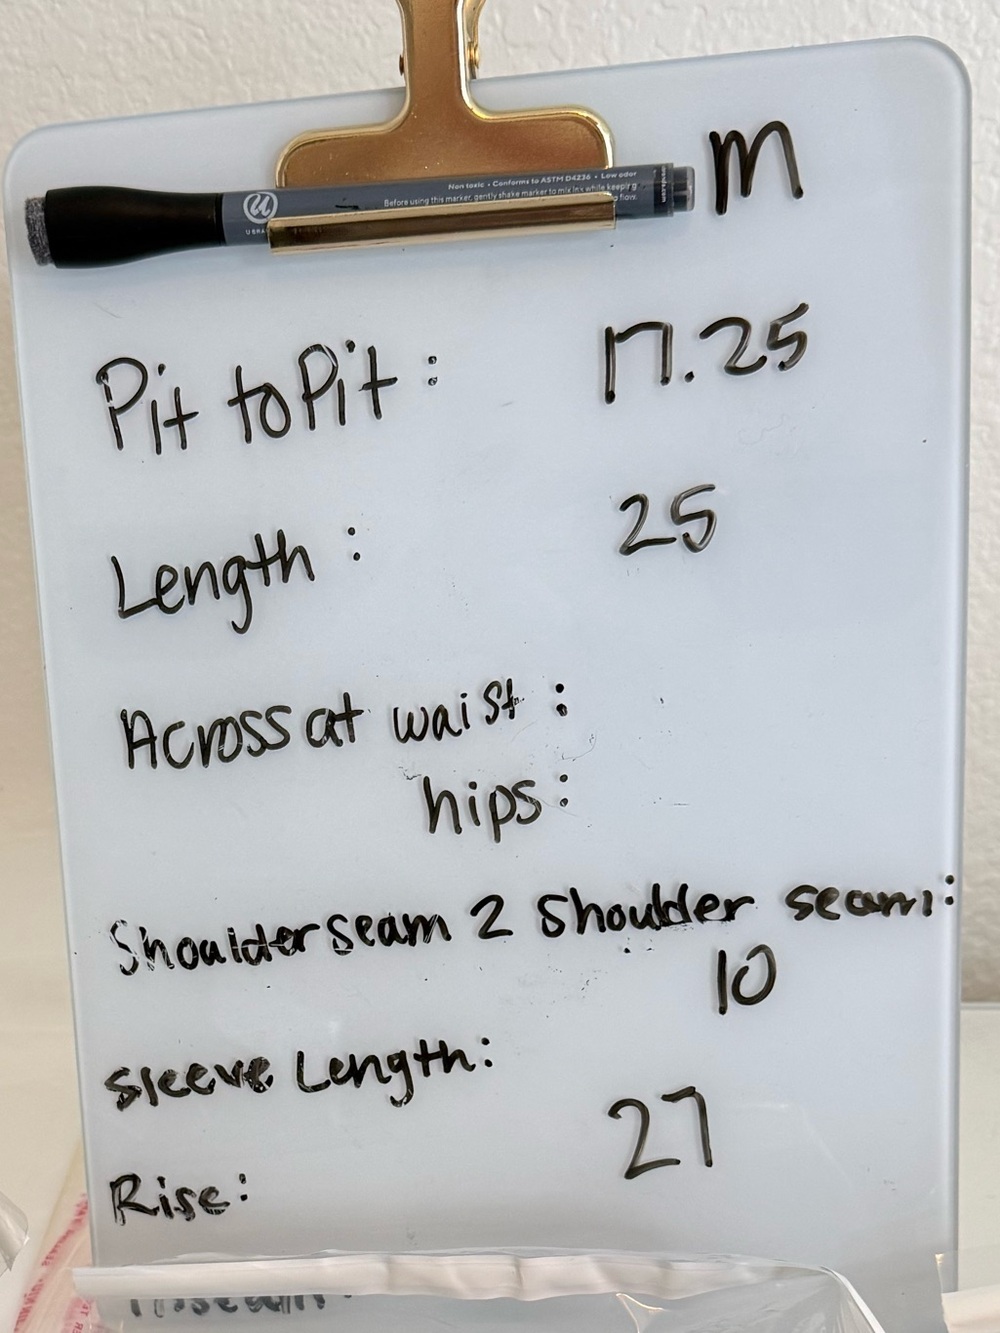 M
Non toxic • Conforms to ASTM D4236 • Low odor
Before using this marker, gently shake marker to mix ink while keeping
Pit to Pit : 17.25
Length : 25
Across at waist :
hips:
Shoulder seam 2 Shoulder seam:
10
Sleeve Length:
27
Rise: